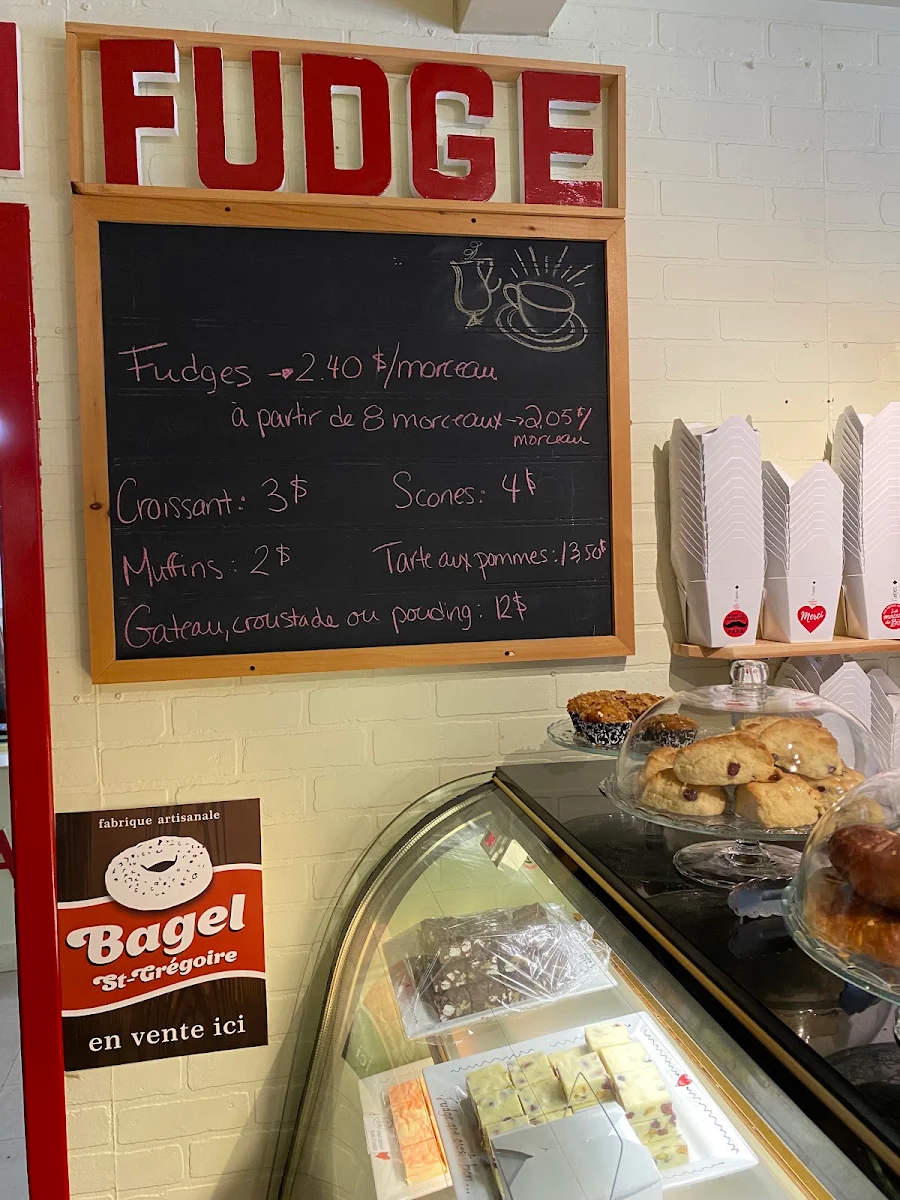 FUDGE
Fudges → 2.40 $/morceau
à partir de 8 morceaux → 2.05 $/
morceau
Croissant: 3$
Scones: 4$
Muffins: 2$
Tarte aux pommes: 13,50$
Gateau, croustade ou pouding: 12$
Merci
fabrique artisanale
Bagel
St-Grégoire
en vente ici